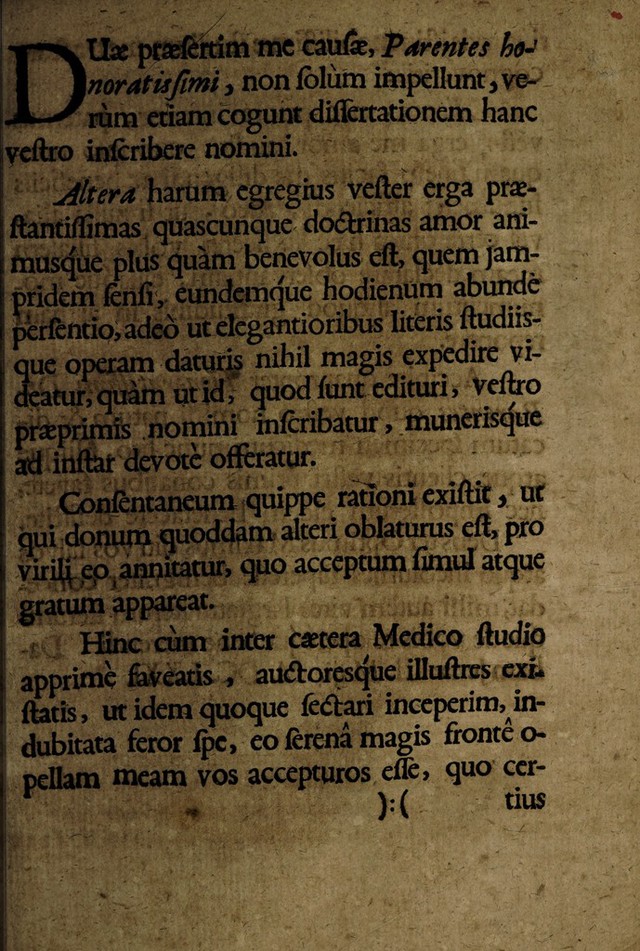 DUæ præſertim me cauſæ, Parentes ho-
noratisſimi, non ſolùm impellunt, ve-
rùm etiam cogunt diſſertationem hanc
veſtro inſcribere nomini.
Altera harum egregius veſter erga præ-
ſtantiſſimas quascunque doctrinas amor ani-
musq́ue plus quàm benevolus eſt, quem jam-
pridem ſenſi, eundemq́ue hodienum abundè
perſentio, adeò ut elegantioribus literis ſtudiis-
que operam daturis nihil magis expedire vi-
deatur, quàm ut id, quod ſunt edituri, veſtro
præprimis nomini inſcribatur, munerisq́ue
ad inſtar devotè offeratur.
Conſentaneum quippe rationi exiſtit, ut
qui donum quoddam alteri oblaturus eſt, pro
virili eo annitatur, quo acceptum ſimul atque
gratum appareat.
Hinc cùm inter cætera Medico ſtudio
apprimè faveatis, auctoresq́ue illuſtres exi-
ſtatis, ut idem quoque ſectari inceperim, in-
dubitata feror ſpe, eo ſerenâ magis frontê o-
pellam meam vos accepturos eſſe, quo cer-
):( tius